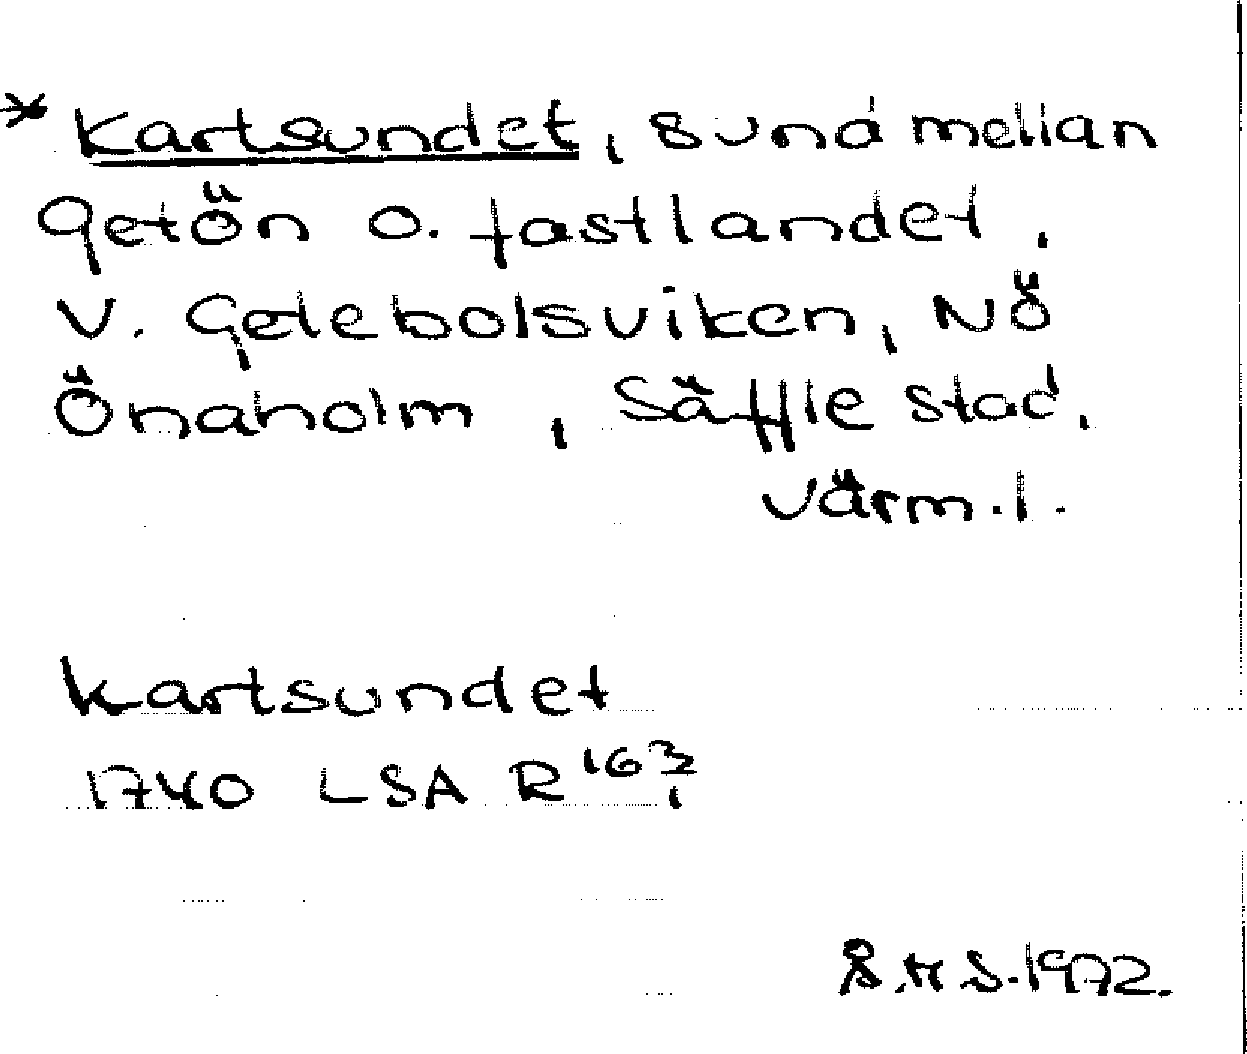 * Kartsundet, sund mellan
Getön o. fastlandet,
V. Getebolsviken, NÖ
Önaholm, Säffle stad,
Värm.l.
Kartsundet
1740 LSA R 163/1
S.H S.1972.